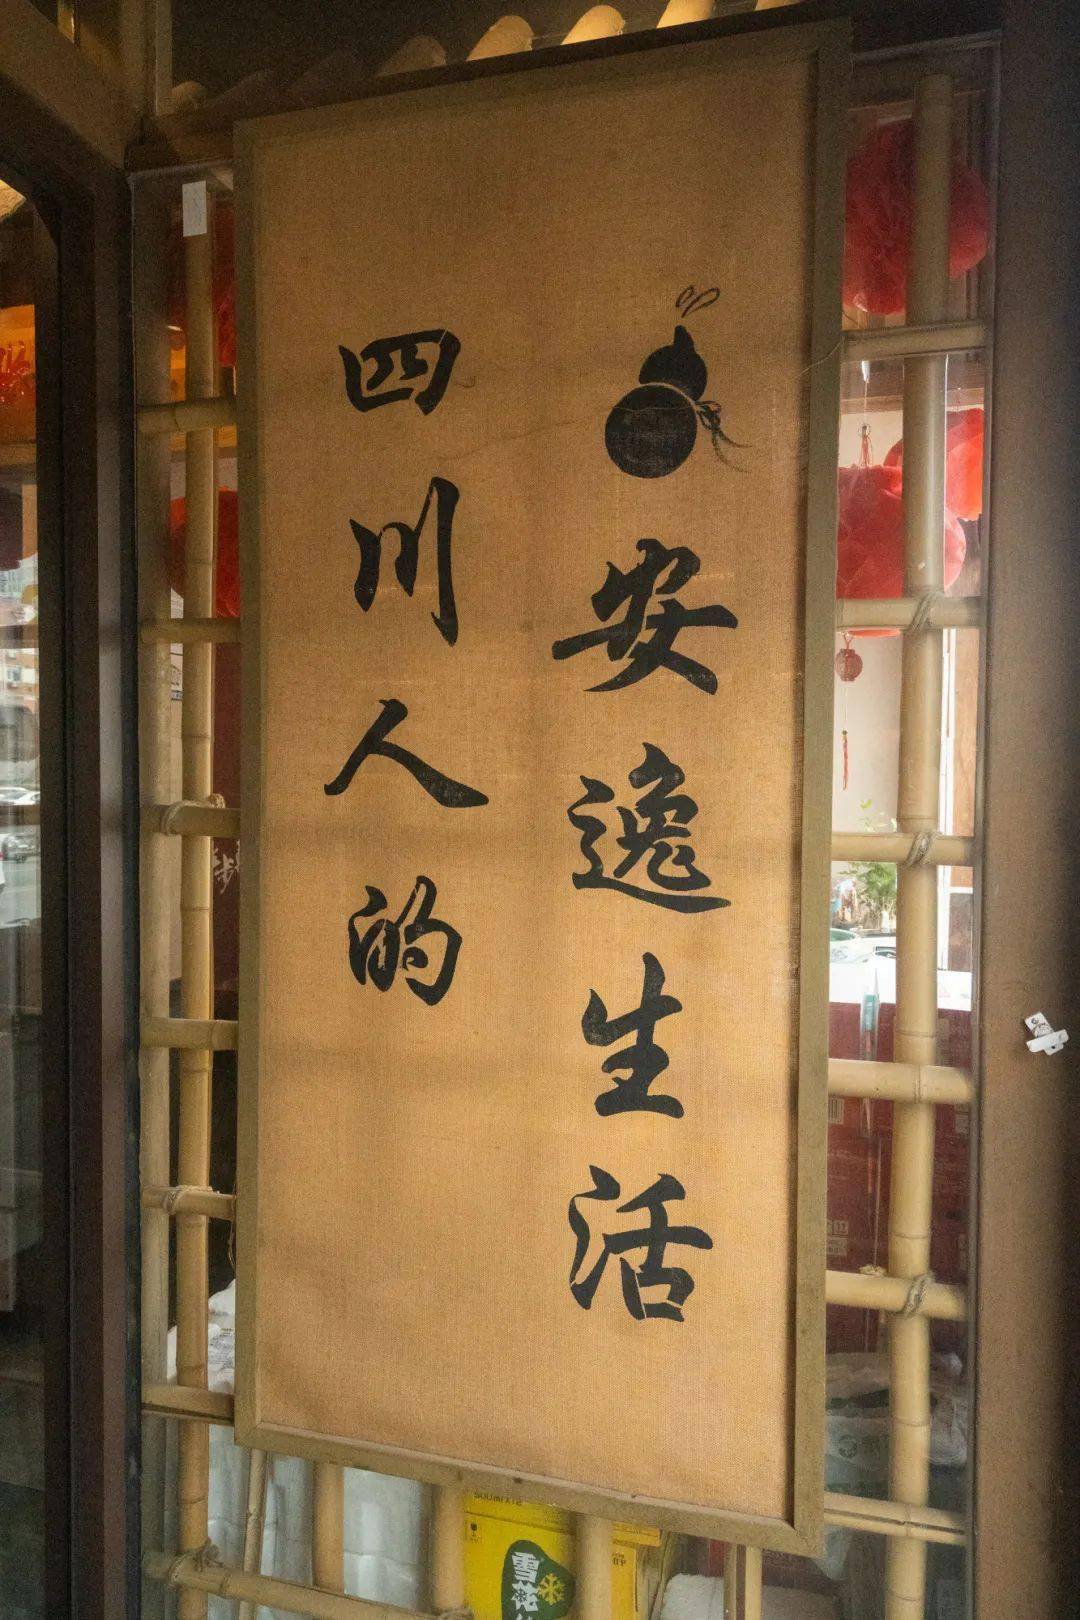 四川人的
安逸生活
雪花